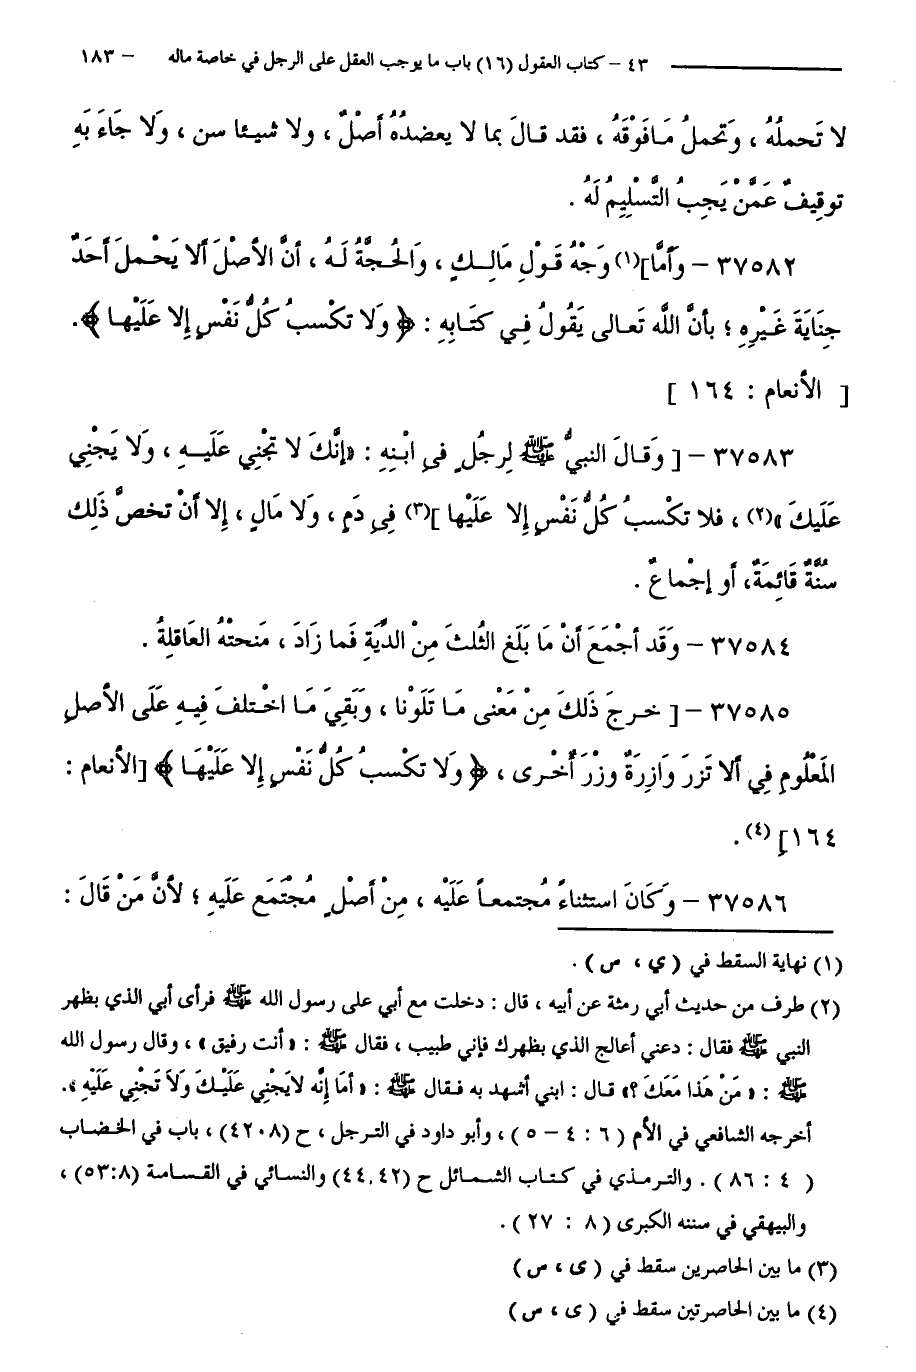 ٤٣ – كتاب العقول (١٦) باب ما يوجب العقل على الرجل في خاصة ماله – ١٨٣
لا تَحملُهُ ، وَتحملُ مَـافَوْقَهُ ، فقد قـالَ بما لا يعضدُهُ أصْلٌ ، ولا شيـئا سن ، وَلا جَاءَ بَهِ
توقِيفٌ عَمَّنْ يَجِبُ التَّسْلِيمُ لَهُ .
٣٧٥٨٢ – وَأمَّا](١) وَجْهُ قَـوْلِ مَالِـكٍ ، وَالحُـجَّةُ لَـهُ ، أنَّ الأصْلَ ألا يَحْـملَ أحَدٌ
جِنَايَةَ غَـيْرِهِ ؛ بأنَّ اللَّه تَعـالى يَقُولُ فِـي كتَـابِهِ : ﴿ وَلا تكْسـبُ كُلُّ نَفْسٍ إلا عَلَيْهـا ﴾.
[ الأنعام : ١٦٤ ]
٣٧٥٨٣ – [ وَقـالَ النبيُّ ﷺ لِرجُلٍ في ابْـنِهِ : «إنَّكَ لا تجْنِي عَلَيـهِ ، وَلا يَجْنِي
عَلَيكَ »(٢) ، فلا تكْسبُ كُلُّ نَفْسٍ إلا عَلَيْها ](٣) فِي دَمٍ ، وَلا مَالٍ ، إلا أنْ تخصَّ ذَلِك
سُنَّةٌ قَائِمَةٌ، أو إجْماعٌ .
٣٧٥٨٤ – وَقَد أجْمَعَ أنْ مَا بَلَغ الثُلثَ مِنْ الدِّيَةِ فَما زَادَ ، مَنحتْهُ العَاقلةُ .
٣٧٥٨٥ – [ خـرجَ ذَلكَ مِنْ مَعْنى مَـا تَلَوْنا ، وَبَقِيَ مَـا اخْـتلفَ فِيـهِ عَلَى الأصْلِ
المَعْلُومِ فِي ألا تَزرَ وَازِرَةٌ وِزْرَ أُخْـرى ، ﴿ ولا تكْسبُ كُلُّ نَفْسٍ إلا عَلَيْهَـا ﴾ [الأنعام :
١٦٤] (٤).
٣٧٥٨٦ – وَكَانَ استثناءً مُجتمعـاً عَلَيْه ، مِنْ أصْلٍ مُجْتَمَع عَلَيهِ ؛ لأنَّ مَنْ قَالَ :
(١) نهاية السقط في ( ي ، ص ) .
(٢) طرف من حديث أبي رمثة عن أبيه ، قال : دخلت مع أبي على رسول الله ﷺ فرأى أبي الذي بظهر
النبي ﷺ فقال : دعني أعالج الذي بظهرك فإني طبيب ، فقال ﷺ : « أنت رفيق » ، وقال رسول الله
ﷺ : « مَنْ هَذا مَعَكَ ؟» قـال : ابني أشهد به فـقال ﷺ : « أمَا إنَّه لايَجْنِي عَلَيْـكَ وَلاَ تَجْنِي عَلَيْهِ ».
أخرجه الشافعي في الأم ( ٦ : ٤ – ٥ ) ، وأبو داود في الترجل ، ح (٤٢٠٨) ، باب في الخـضـاب
( ٤ : ٨٦ ) . والتـرمـذي في كـتـاب الشـمـائل ح (٤٤،٤٢) والنسـائي في القـسـامـة (٥٣:٨) ،
والبيهقي في سننه الكبرى ( ٨ : ٢٧ ) .
(٣) ما بين الحاصرين سقط في ( ى ، ص )
(٤) ما بين الحاصرتين سقط في ( ى ، ص )